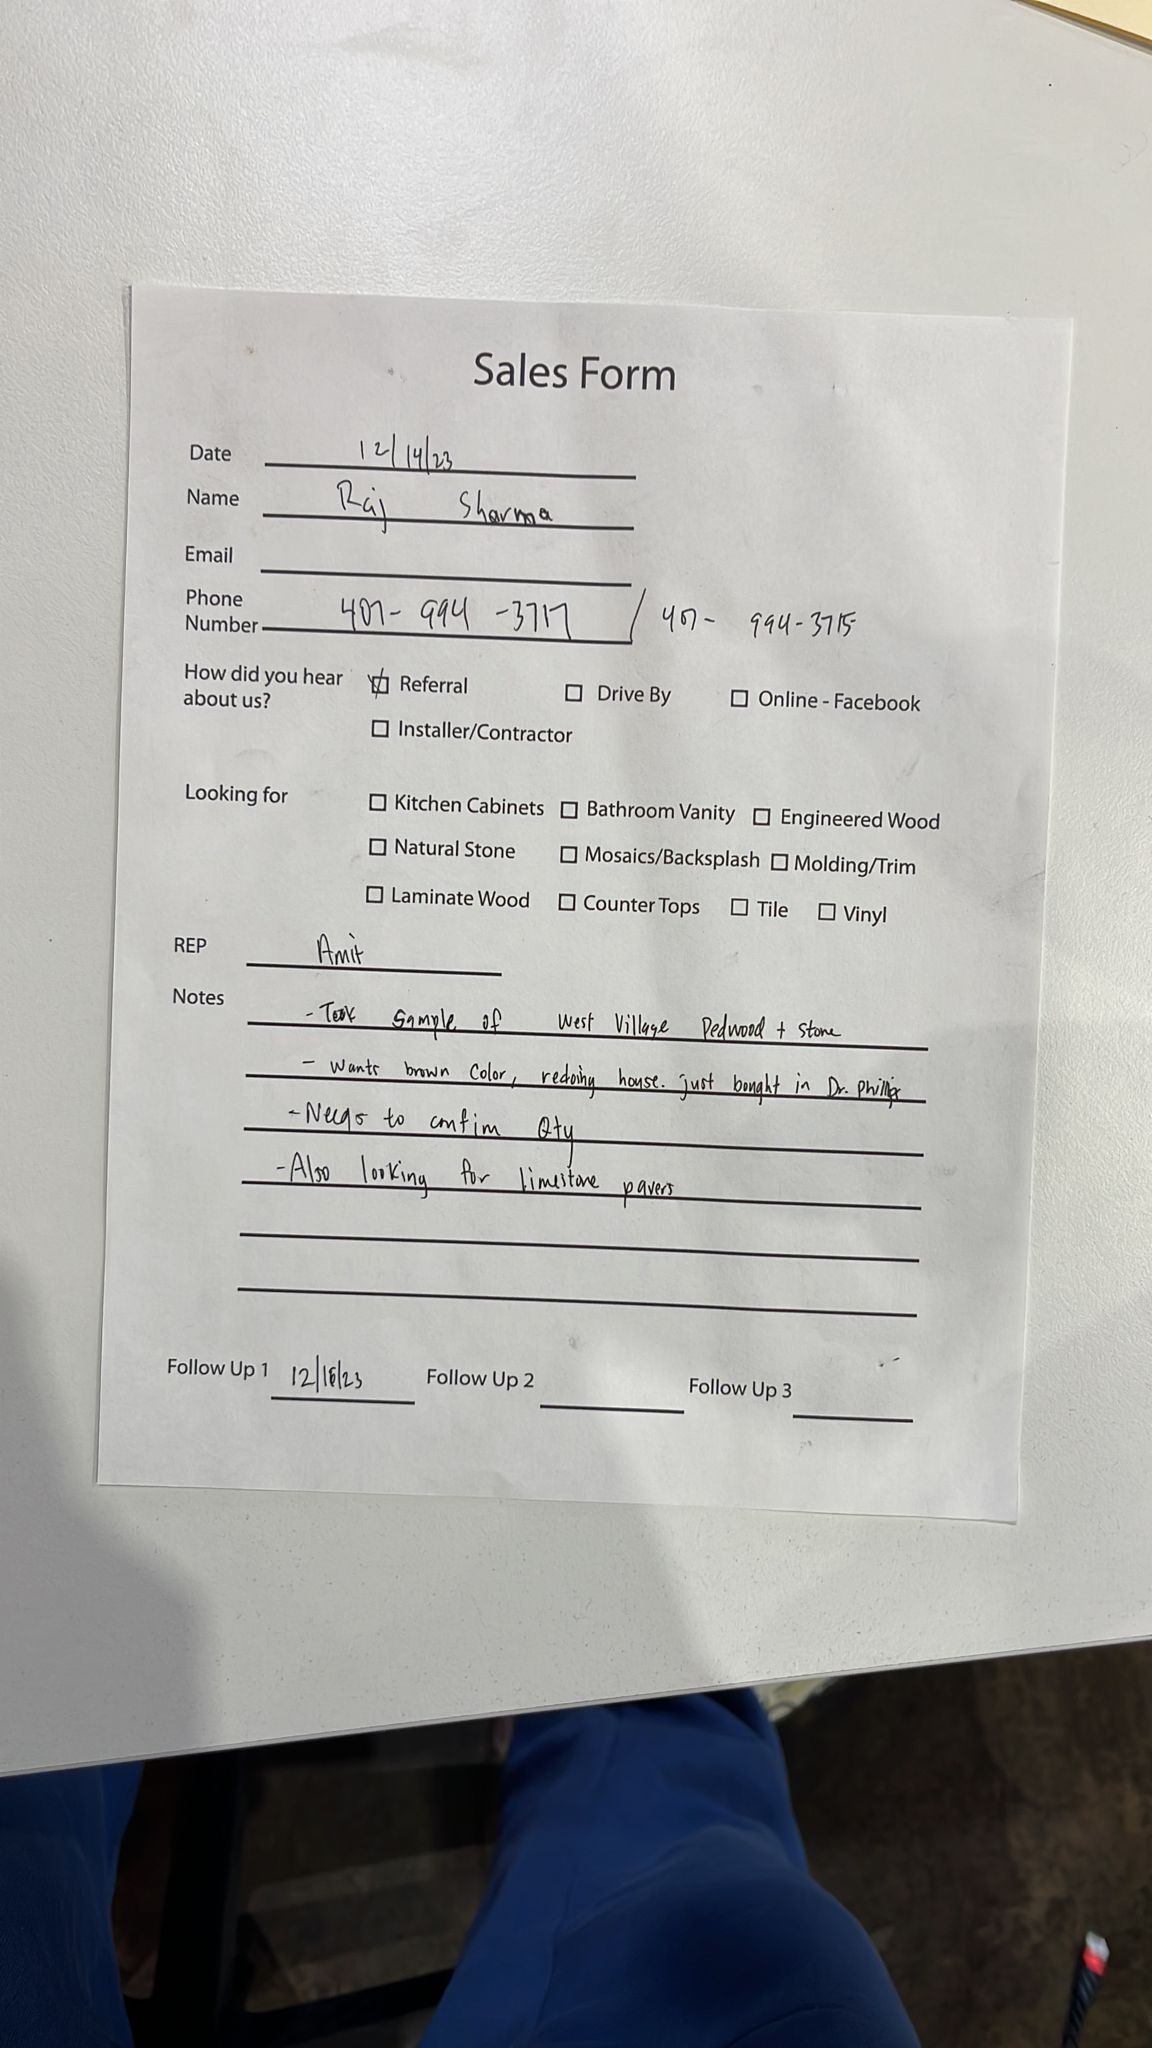 Sales Form
Date 12/14/23
Name Raj Sharma
Email
Phone
Number 407- 994 -3717 / 407- 994-3715
How did you hear Referral Drive By Online - Facebook
about us?
Installer/Contractor
Looking for Kitchen Cabinets Bathroom Vanity Engineered Wood
Natural Stone Mosaics/Backsplash Molding/Trim
Laminate Wood Counter Tops Tile Vinyl
REP Amit
Notes - Took sample of West Village Pedwood + Stone
- Wants brown color, redoing house. just bought in Dr. Phillips
- Needs to confim Qty
- Also looking for limestone pavers
Follow Up 1 12/16/23 Follow Up 2 Follow Up 3